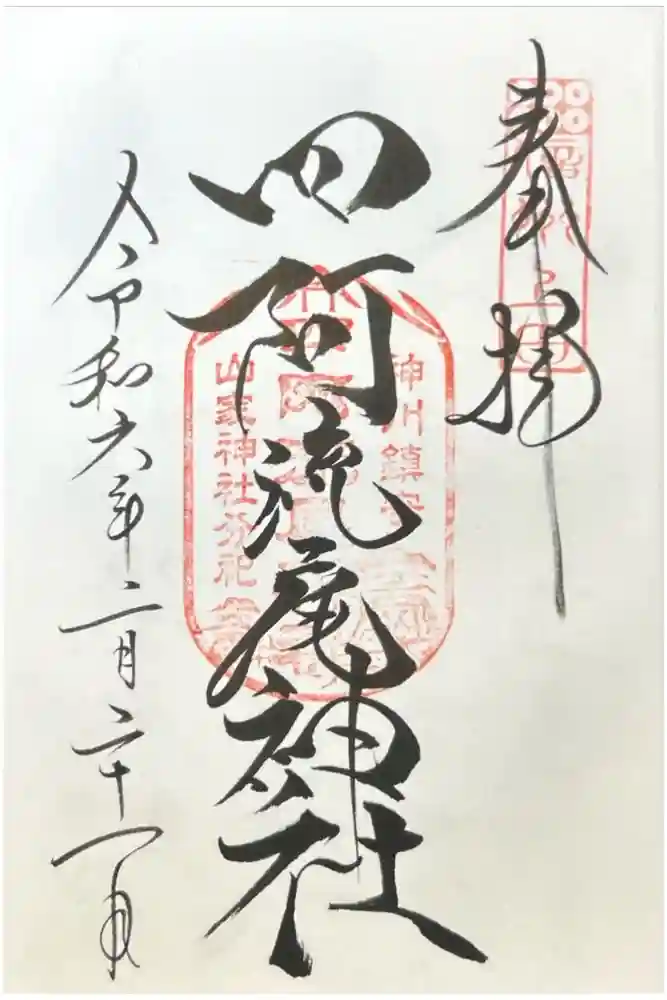 奉拝
四阿流尾神社
神川鎮守
山家神社分社
令和六年二月二十一日